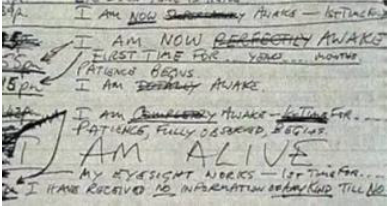 I AM NOW AWAKE — 1ST TIME FOR
I AM NOW PERFECTLY AWAKE
FIRST TIME FOR.... YEARS ..... MONTHS
PATIENCE BEGINS
15pm I AM TOTALLY AWAKE.
I AM COMPLETELY AWAKE — 1st TIME FOR....
PATIENCE, FULLY OBSERVED, BEGINS.
I AM ALIVE
MY EYESIGHT WORKS — 1ST TIME FOR....
I HAVE RECEIVED NO INFORMATION OF ANY KIND TILL NO